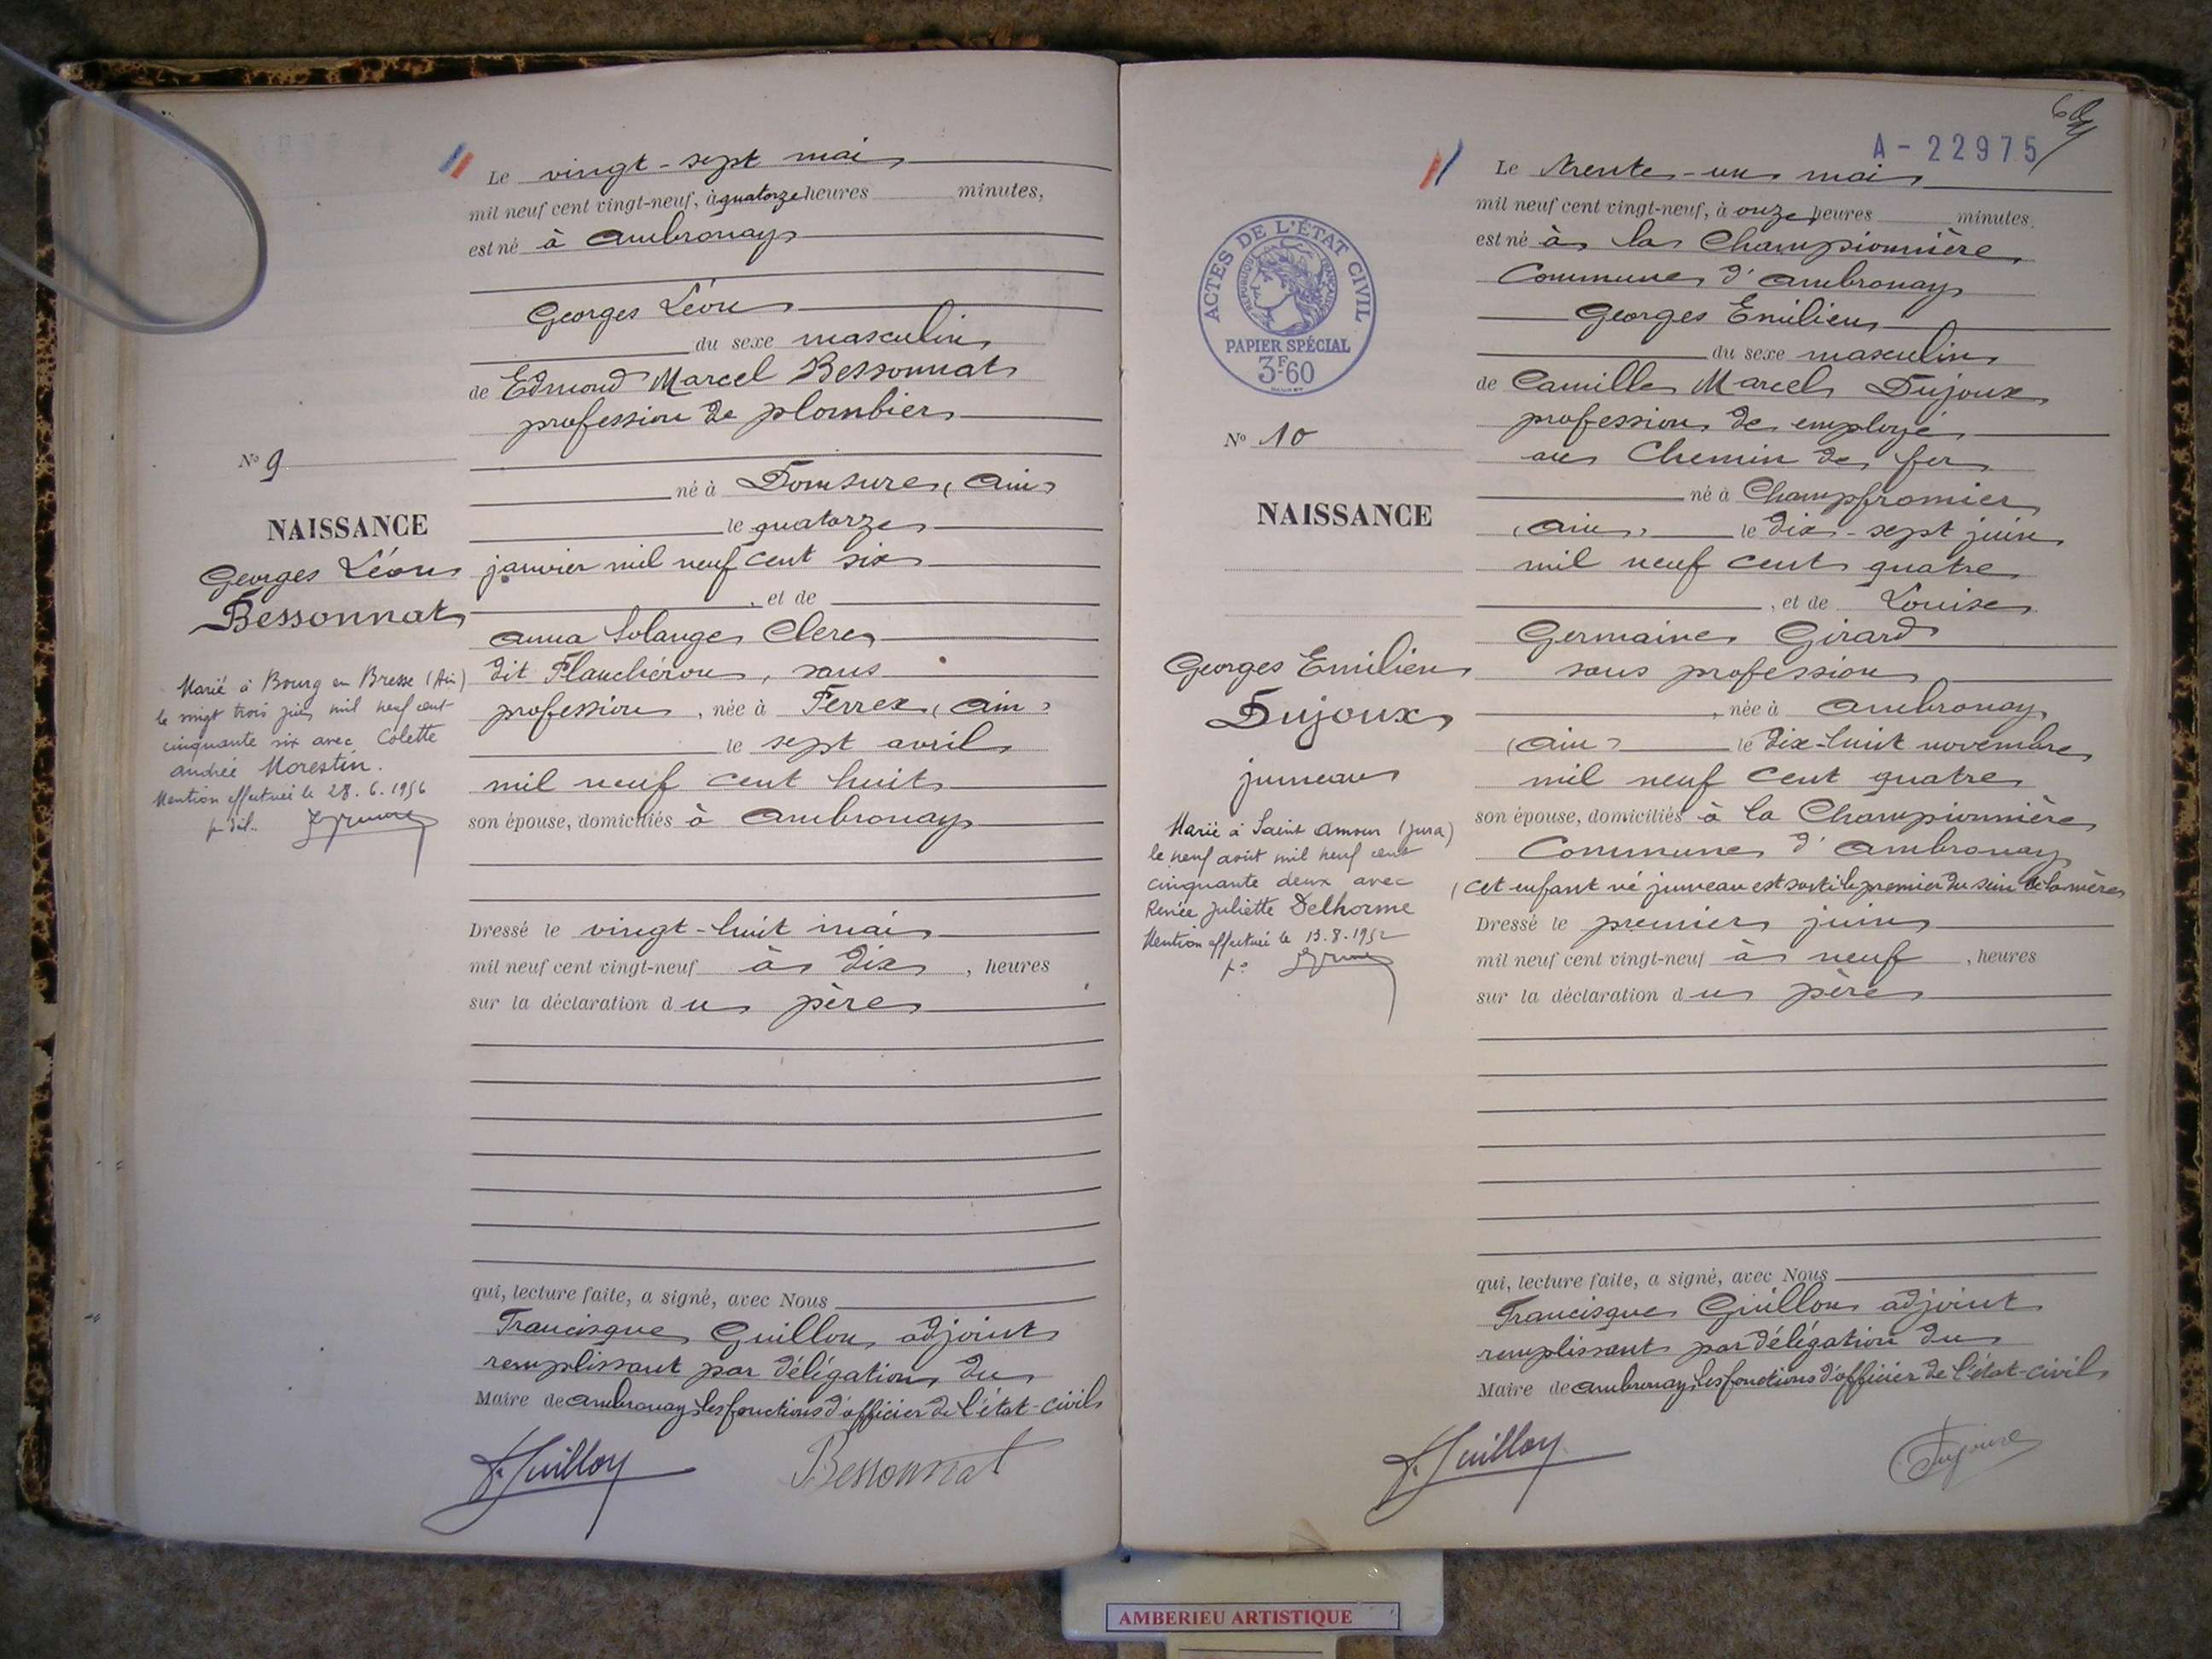 Le vingt-sept mai
mil neuf cent vingt-neuf, à quatorze heures minutes,
est né à Ambronay
Georges Léon
du sexe masculin
de Edmond Marcel Bessonnat
profession de plombier
né à Domsure (Ain)
le quatorze
janvier mil neuf cent six
, et de
Anna Solange Clerc
dit Planchéron, sans
profession, née à Ferrex (Ain)
le sept avril
mil neuf cent huit
son épouse, domiciliés à Ambronay
Dressé le vingt-huit mai
mil neuf cent vingt-neuf à dix, heures
sur la déclaration du père
qui, lecture faite, a signé, avec Nous
Francisque Guillon adjoint
remplissant par délégation du
Maire de Ambronay les fonctions d'officier de l'état-civil
F. Guillon
Bessonnat
N° 9
NAISSANCE
Georges Léon
Bessonnat
Marié à Bourg en Bresse (Ain)
le vingt trois juin mil neuf cent
cinquante six avec Colette
Andrée Morestin.
Mention effectuée le 28.6.1956
A-22975
Le trente-un mai
mil neuf cent vingt-neuf, à onze heures minutes,
est né à la Championnière
Commune d'Ambronay
Georges Emilien
du sexe masculin
de Camille Marcel Dujoux
profession de employé
au Chemin de fer
né à Champfromier
(Ain) le dix-sept juin
mil neuf cent quatre
, et de Louise
Germaine Girard
sans profession
, née à Ambronay
(Ain) le dix-huit novembre
mil neuf cent quatre
son épouse, domiciliés à la Championnière
Commune d'Ambronay
(cet enfant né jumeau est sorti le premier du sein de la mère
Dressé le premier juin
mil neuf cent vingt-neuf à neuf, heures
sur la déclaration du père
qui, lecture faite, a signé, avec Nous
Francisque Guillon adjoint
remplissant par délégation du
Maire de Ambronay les fonctions d'officier de l'état-civil
F. Guillon
Dujoux
ACTES DE L'ÉTAT CIVIL
RÉPUBLIQUE FRANÇAISE
PAPIER SPÉCIAL
3F60
N° 10
NAISSANCE
Georges Emilien
Dujoux
jumeau
Marié à Saint Amour (Jura)
le neuf août mil neuf cent
cinquante deux avec
Renée Juliette Delhorme
Mention effectuée le 13.8.1952
AMBERIEU ARTISTIQUE